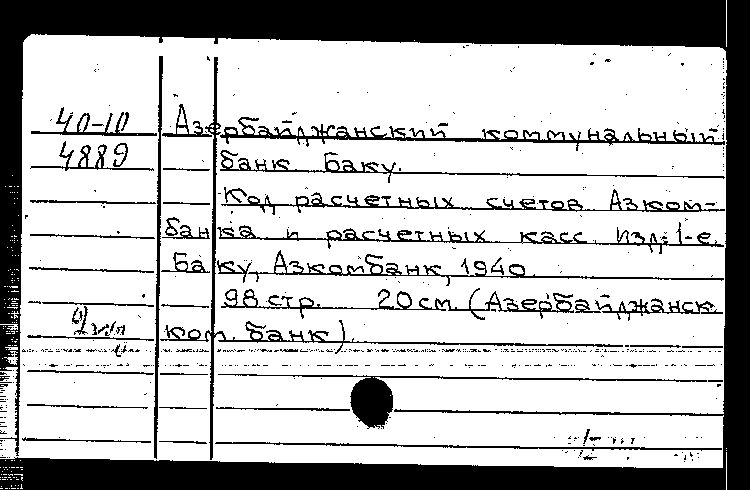 40-10 Азербайджанский коммунальный
4889 банк Баку.
Код расчетных счетов Азком-
банка и расчетных касс. Изд. 1-е.
Баку, Азкомбанк, 1940.
98 стр. 20 см. (Азербайджанск.
ком. банк).